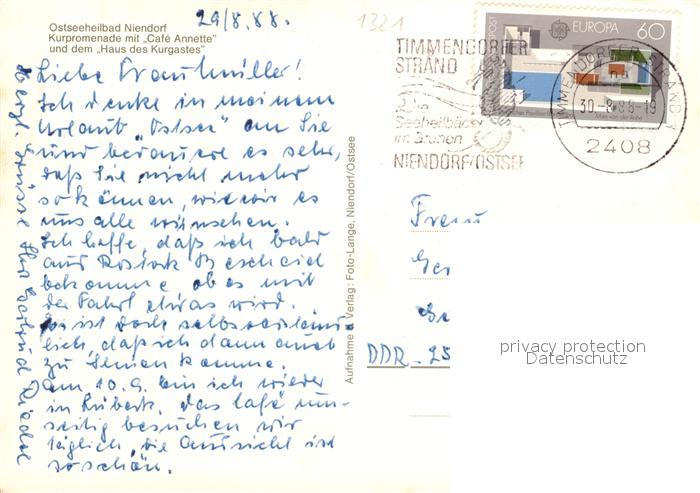 29/8.88.
1321
Ostseeheilbad Niendorf
Kurpromenade mit „Café Annette"
und dem „Haus des Kurgastes"
Liebe Frau Müller!
Ich denke in meinem
Urlaub „Ostsee" an Sie
und bedauere es sehr,
daß Sie nicht mehr
so können, wie wir es
uns alle wünschen.
Ich hoffe, daß ich bald
aus Rostock Bescheid
bekomme ob es mit
der Fahrt etwas wird.
Es ist doch selbstverständ
lich, daß ich dann auch
zu Ihnen komme.
Am 10. 9. bin ich wieder
in Lübeck. Das Café um-
seitig besuchen wir
täglich, die Aussicht ist
so schön.
Herzl. Grüsse Ihre Gertrud Riedel
Aufnahme u. Verlag: Foto-Lange, Niendorf/Ostsee
TIMMENDORFER
STRAND
Seeheilbäder
im Grünen
NIENDORF/OSTSEE
POST
EUROPA 60
Pavillon
Mies van der Rohe
TIMMENDORFER STRAND 1
30.-8.88-19
2408
Frau
Ger
DDR - 25
privacy protection
Datenschutz